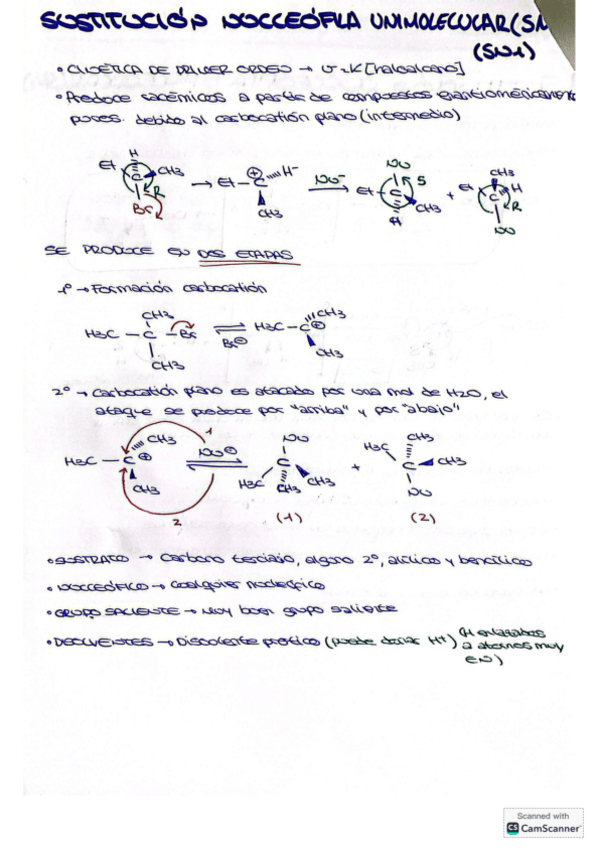 SUSTITUCIÓN NUCLEÓFILA UNIMOLECULAR (SN
(SN1)
• CINÉTICA DE PRIMER ORDEN → v=K[haloalcano]
• Produce racémicos a partir de compuestos enantioméricamente
puros. debido al carbocatión plano (intermedio)
H
Et C CH3 R
Br
→ Et - C ⊕ H
CH3
NU⁻
NU
Et - C S
CH3
H
+
CH3
Et C H
R
NU
SE PRODUCE EN DOS ETAPAS
1º → Formación carbocatión
CH3
H3C - C - Br ⇌ H3C - C⊕ CH3
Br⊖
CH3 CH3
2º → Carbocatión plano es atacado por una mol de H2O, el
ataque se produce por "arriba" y por "abajo"
1
H3C - C ⊕ CH3
CH3
NU⊖
NU
C
H3C CH3 CH3
+
CH3
H3C C CH3
NU
2 (1) (2)
• SUSTRATO → Carbono terciario, alguno 2º, alílico y bencílico
• NUCLEÓFILO → Cualquier nucleófilo
• GRUPO SALIENTE → Muy buen grupo saliente
• DISOLVENTES → Disolvente prótico (puede donar H+) (H enlazados
a átomos muy
EN)
Scanned with
CS CamScanner